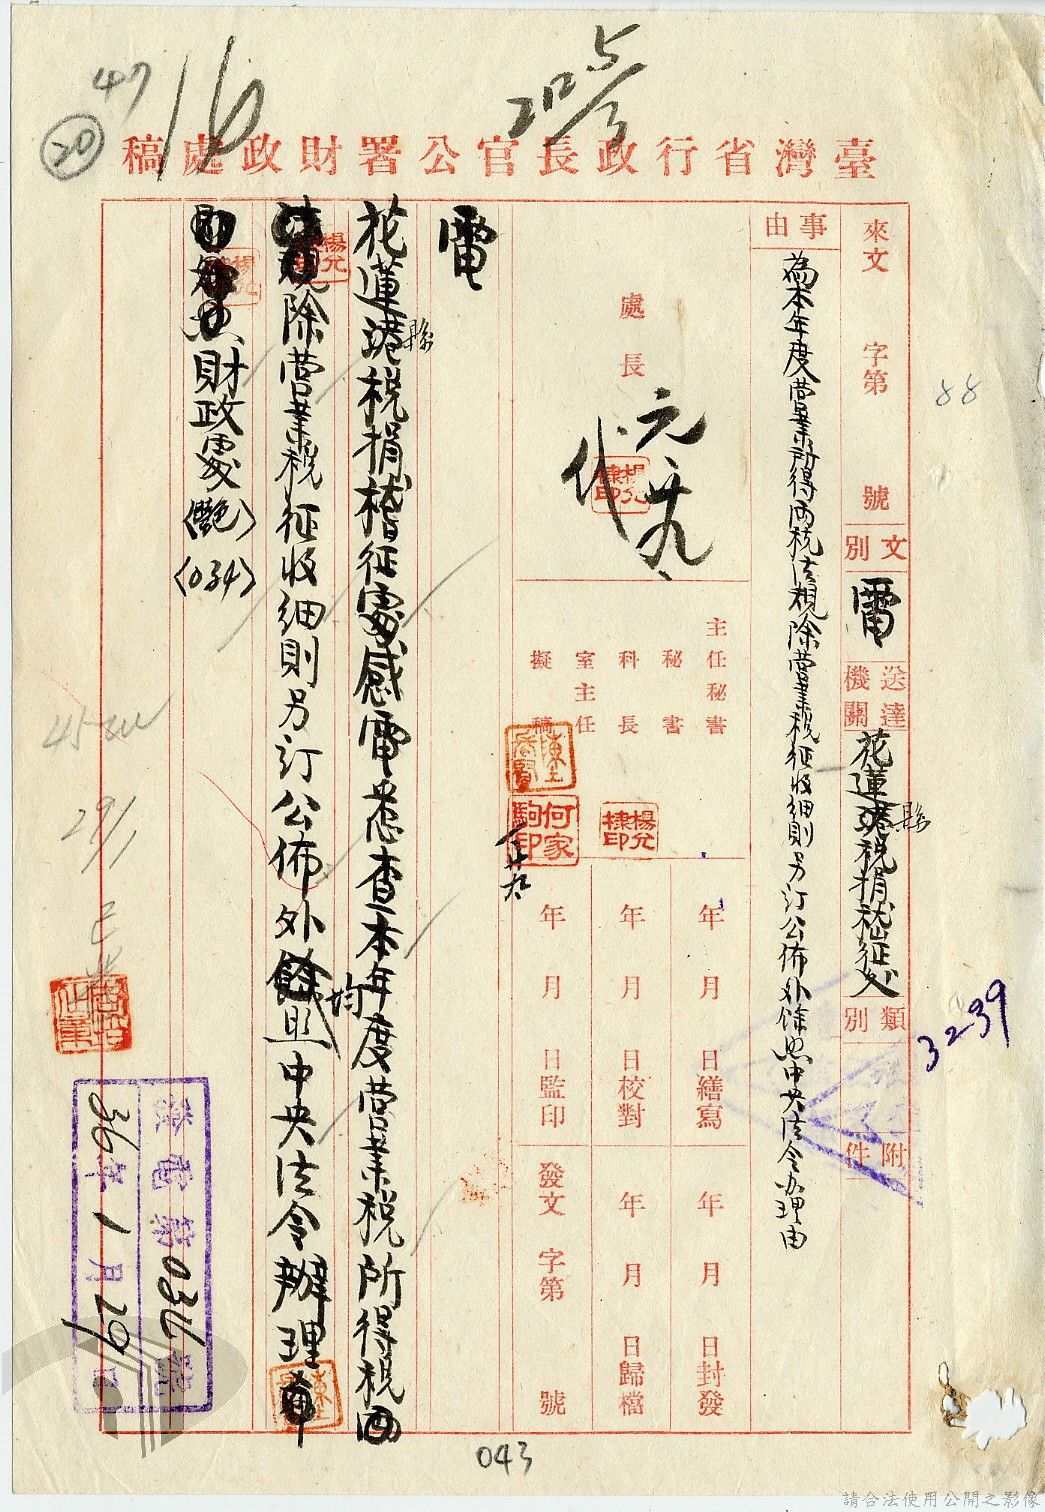 47
20
16
臺灣省行政長官公署財政處稿
來文 字第 號
文別
電
送達機關
花蓮縣稅捐稽征處
類別
附件
事由
為本年度營業所得兩稅法規除營業稅征收細則另订公佈外餘照中央法令办理由
處長
元 廿九
代
楊允棣印
主任秘書
秘書
科長
室主任
擬稿
楊允棣印
何家駒印
年 月 日繕寫
年 月 日校對
年 月 日監印
年 月 日封發
年 月 日歸檔
發文 字第 號
電
花蓮縣稅捐稽征處感電悉查本年度营業税所得稅两
法規除营業税征收細則另订公佈外均照中央法令辦理
財政處〈艷〉〈034〉
29/1
發電第034號
36年1月29日
3239
88
043
請合法使用公開之影像